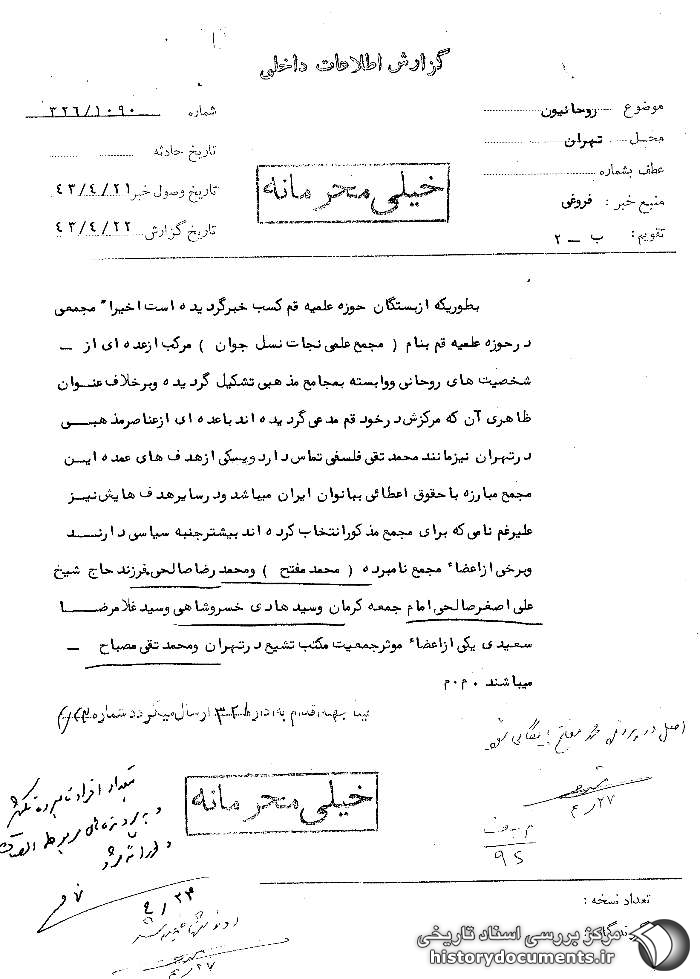 گزارش اطلاعات داخلی
موضوع روحانیون
محل تهران
عطف بشماره
منبع خبر : فروغی
تقویم : ب - ۲
شماره ۳۲۶/۱۰۹۰
تاریخ حادثه
تاریخ وصول خبر ۴۳/۴/۲۱
تاریخ گزارش ۴۳/۴/۲۲
خیلی محرمانه
بطوریکه ازبستگان حوزه علمیه قم کسب خبرگردیده است اخیراً مجمعی
درحوزه علمیه قم بنام ( مجمع علمی نجات نسل جوان ) مرکب ازعده ای از -
شخصیت های روحانی ووابسته بمجامع مذهبی تشکیل گردیده وبرخلاف عنوان
ظاهری آن که مرکزش درخود قم مدعی گردیده اند باعده ای ازعناصرمذهبی
درتهران نیزمانند محمد تقی فلسفی تماس دارد ویکی ازهدف های عمده این
مجمع مبارزه باحقوق اعطائی ببانوان ایران میباشد ودرسایرهدف هایش نیز
علیرغم نامی که برای مجمع مذکورانتخاب کرده اند بیشترجنبه سیاسی دارند
وبرخی ازاعضاء مجمع نامبرده ( محمد مفتح ) ومحمد رضا صالحی فرزند حاج شیخ
علی اصغرصالحی امام جمعه کرمان وسید هادی خسروشاهی وسید غلامرضا
سعیدی یکی ازاعضاء موثرجمعیت مکتب تشیع درتهران ومحمد تقی مصباح -
میباشند ۰م۰م
اداره ۳۲۱ ارسال میگردد شماره
اصل در پرونده محمد مفتح بایگانی شود
۲۷/۴
خیلی محرمانه
۹۵
بتعداد افراد نامبرده تکثیر
و به پرونده‌های مربوط
۲۳/۴
۲۷/۴
تعداد نسخه :
مرکز بررسی اسناد تاریخی
historydocuments.ir